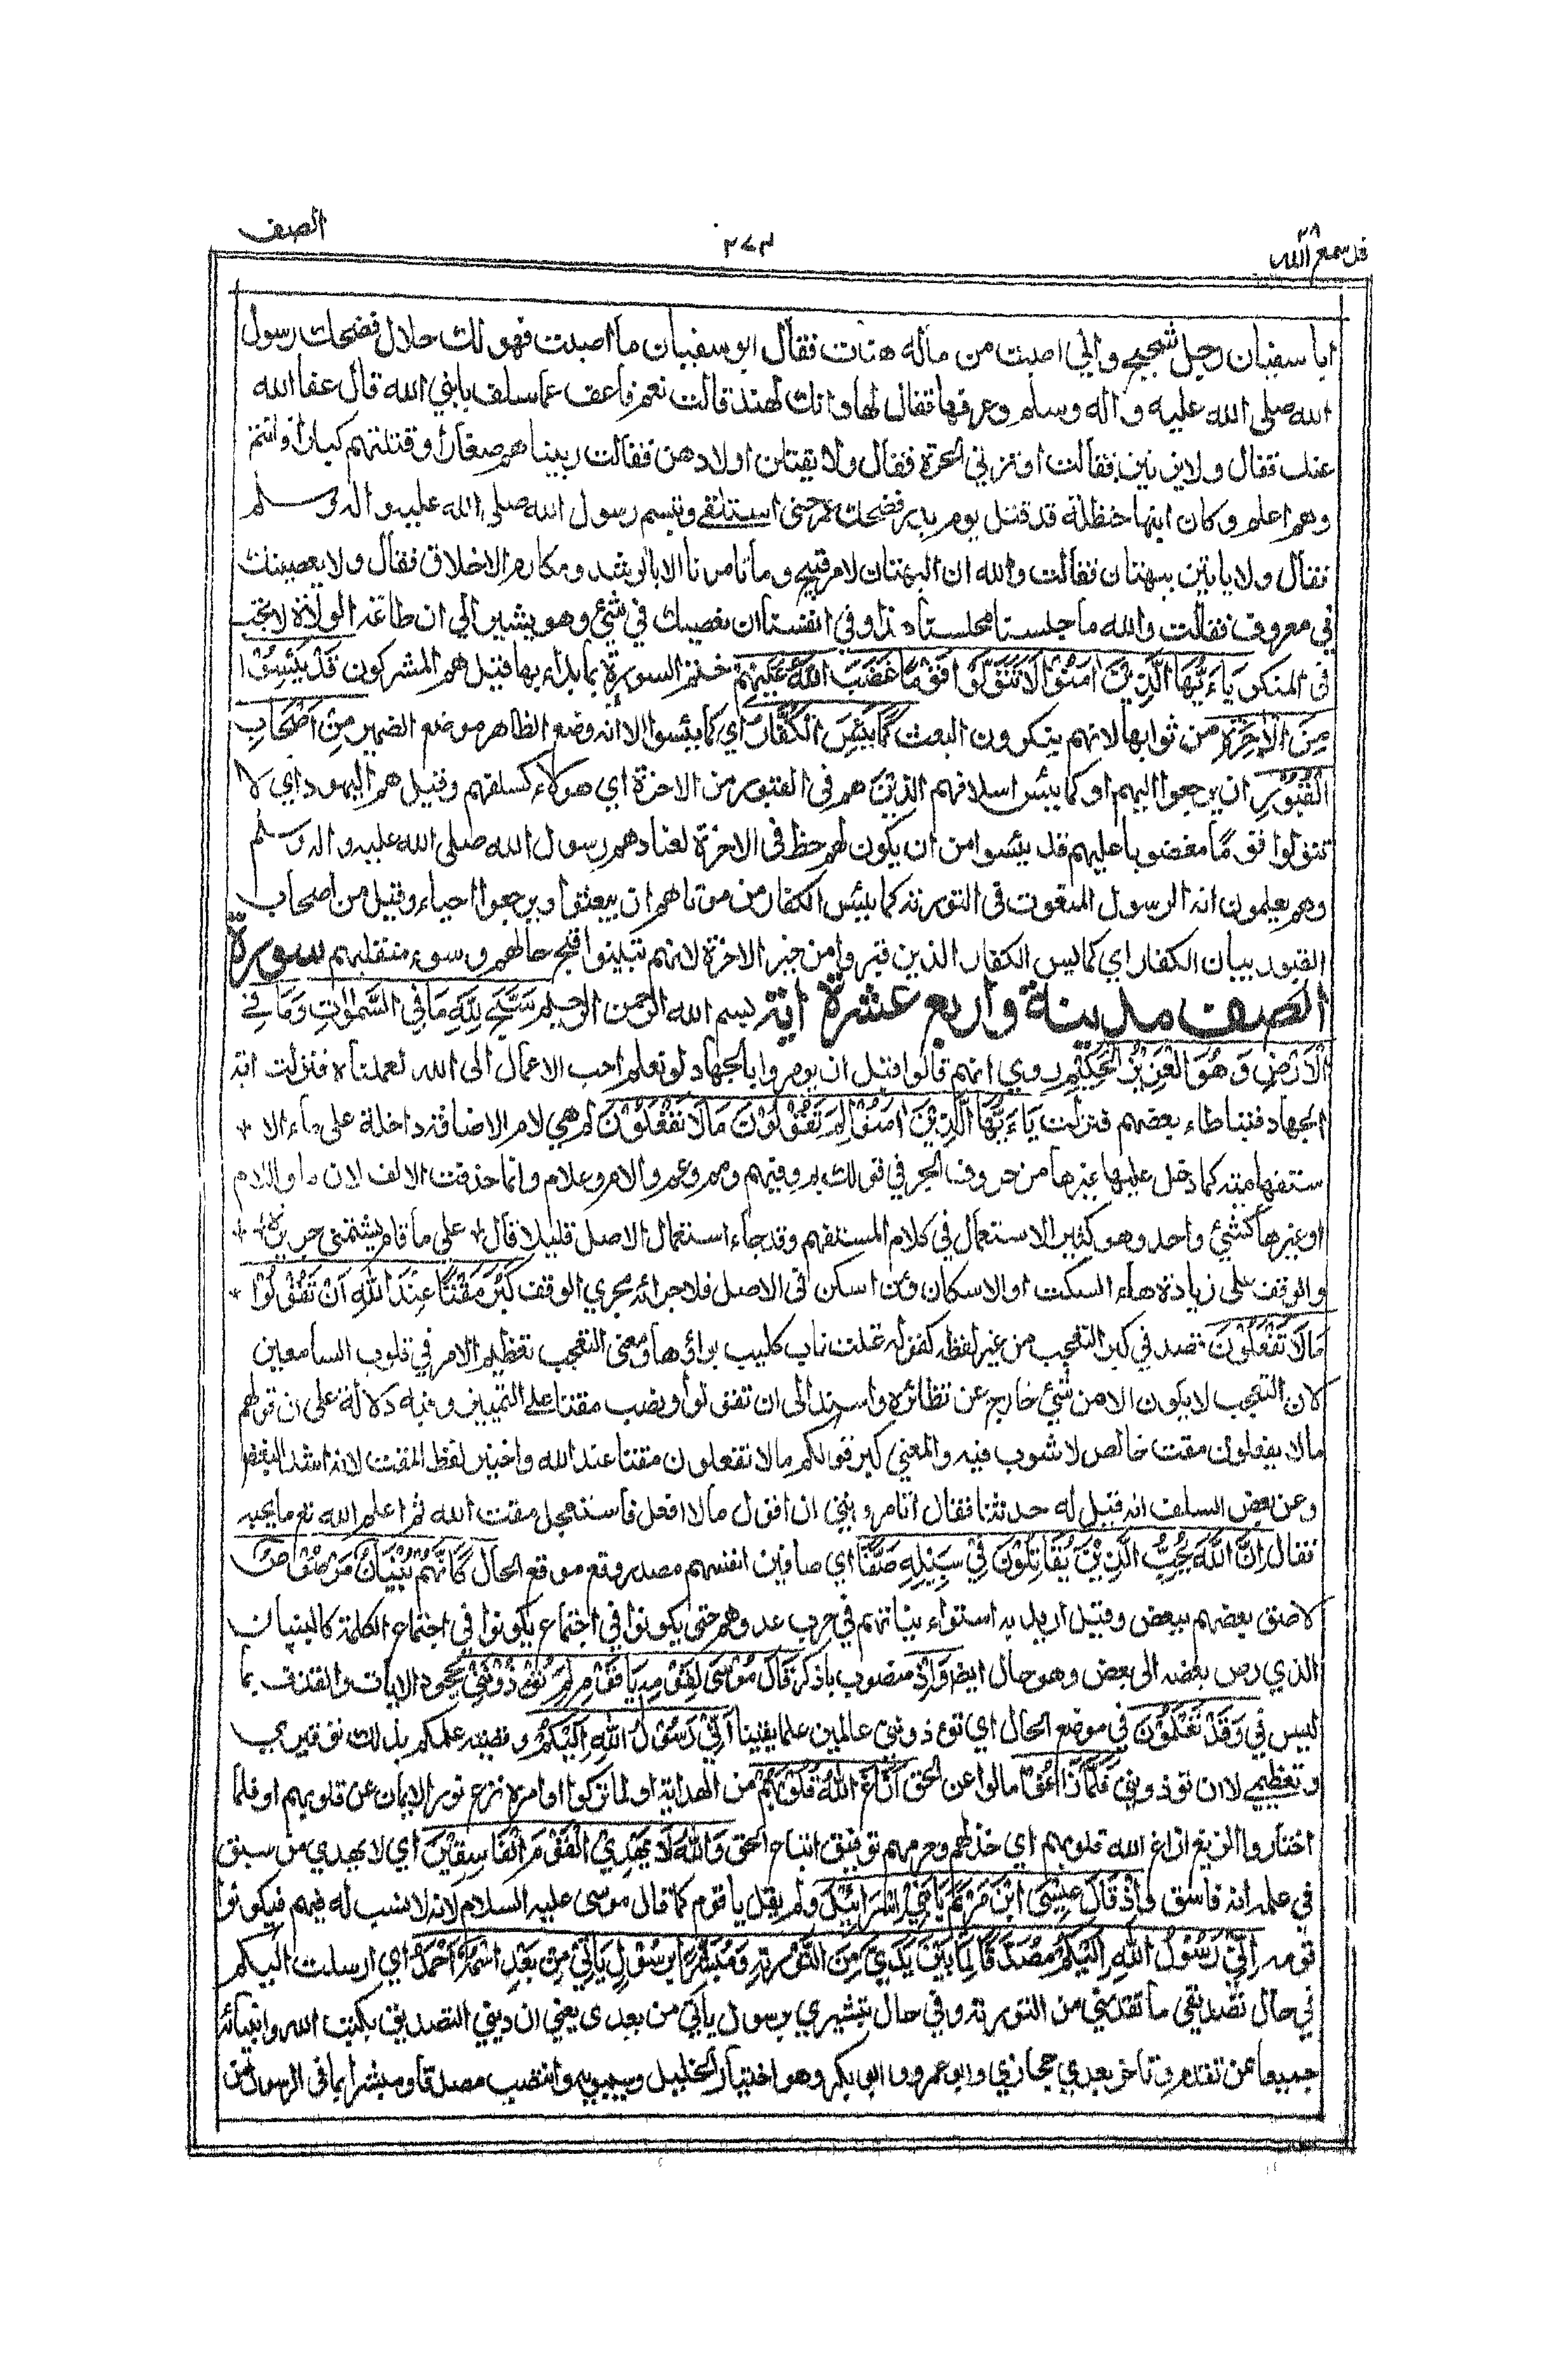 قد سمع الله ٢٨
٣٧٣
الصف
ابا سفيان رجل شحيح واني اصبت من ماله هنات فقال ابو سفيان ما اصبت فهو لك حلال فضحك رسول
الله صلى الله عليه واله وسلم وعرفها فقال لها وانك لهند قالت نعم فاعف عما سلف يا نبي الله قال عفا الله
عنك فقال ولا يزنين فقالت اوتزني الحرة فقال ولا يقتلن اولادهن فقالت ربيناهم صغارا وقتلتهم كبارا وانتم
وهم اعلم وكان ابنها حنظلة قد قتل يوم بدر فضحك عمر حتى استلقى وتبسم رسول الله صلى الله عليه واله وسلم
فقال ولا ياتين ببهتان فقالت والله ان البهتان لامر قبيح وما تامرنا الا بالرشد ومكارم الاخلاق فقال ولا يعصينك
في معروف فقالت والله ما جلسنا مجلسنا هذا وفي انفسنا ان نعصيك في شئ وهو يشير الى ان طاعة الولاة لا تجب
فى المنكر يَاءَيُّهَا الَّذِيْنَ امَنُوْا لَا تَتَوَلَّوْا قَوْمًا غَضِبَ اللهُ عَلَيْهِمْ ختم السورة بما بداء بها قيل هم المشركون قَدْ يَئِسُوْا
مِنَ الْاخِرَةِ من ثوابها لانهم ينكرون البعث كَمَا يَئِسَ الْكُفَّارُ اي كما يئسوا الا انه وضع الظاهر موضع الضمير مِنْ اَصْحَابِ
الْقُبُوْرِ ان يرجعوا اليهم او كما يئس اسلافهم الذِيْنَ هم فى القبور من الاخرة اي هولاء كسلفهم وقيل هم اليهود اي لا
تتولوا قوما مغضوبا عليهم قد يئسوا من ان يكون لهم حظ فى الاخرة لعنادهم رسول الله صلى الله عليه واله وسلم
وهم يعلمون انه الرسول المنعوت فى التورىة كما يئس الكفار من موتاهم ان يبعثوا ويرجعوا احياء وقيل من اصحاب
القبور بيان الكفار اي كما يس الكفار الذين قبروا من خير الاخرة لانهم تبينوا قبح حالهم وسوء منقلبهم سورة
الصف مدينة واربع عشرة اية بسم الله الرحمن الرحيم سَبَّحَ لِلّهِ مَا فِى السَّموتِ وَمَا فِى
الْاَرْضِ وَهُوَ الْعَزِيْزُ الْحَكِيْمُ روي انهم قالوا قبل ان يومروا بالجهاد لو نعلم احب الاعمال الى الله لعملناه فنزلت اية
الجهاد فتباطاء بعضهم فنزلت يَاءَيُّهَا الَّذِيْنَ امَنُوْا لِمَ تَقُوْلُوْنَ مَا لَا تَفْعَلُوْنَ لم هي لام الاضافة داخلة على ماء الا *
ستفهامية كما دخل عليها غيرها من حروف الجر في قولك بم وفيم ومم وعم والام وعلام وانما حذفت الالف لان ما واللام
اوغيرها كشئ واحد وهو كثير الاستعمال في كلام المستفهم وقد جاء استعمال الاصل قليلا قال * على ما قام يشتمنى جرير * *
والوقف على زيادة هاء السكت او الاسكان ومن اسكن فى الاصل فلاجرائه مجرى الوقف كَبُرَ مَقْتًا عِنْدَ اللهِ اَنْ تَقُوْلُوْا *
مَا لَا تَفْعَلُوْنَ قصد في كبر التعجب من غير لفظه كقوله غلت ناب كليب بواؤها ومعنى التعجب تعظيم الامر في قلوب السامعين
لان التعجب لا يكون الا من شئ خارج عن نظائره واسند الى ان تقولوا ونصب مقتا على التمييز وفيه دلالة على ان قولهم
مالا يفعلون مقت خالص لا شوب فيه والمعني كبر قولكم مالا تفعلون مقتا عند الله واختير لفظ المقت لانه اشد البغض
وعن بعض السلف انه قيل له حدثنا فقال اتامرونني ان اقول مالا افعل فاستعجل مقت الله ثم اعلم الله تع ما يحبه
فقال اِنَّ اللّهَ يُحِبُّ الَّذِيْنَ يُقَاتِلُوْنَ فِيْ سَبِيْلِهِ صَفًّا اي صافين انفسهم مصدر وقع موقع الحال كَاَنَّهُمْ بُنْيَانٌ مَرْصُوْصٌ
لاصق بعضهم ببعض وقيل اريد به استواء نياتهم في حرب عدوهم حتى يكونوا في اجتماع الكلمة كالبنيان
الذي رص بعضه الى بعض وهو حال ايضا وَاِذْ منصوب باذكر قَالَ مُوْسَى لِقَوْمِهِ يَا قَوْمِ لِمَ تُؤْذُوْنَنِيْ بجحود الايات والقذف بما
ليس في وَقَدْ تَعْلَمُوْنَ في موضع الحال اي توذونني عالمين علما يقينا اَنِّيْ رَسُوْلُ اللهِ اِلَيْكُمْ وقضية علمكم بذلك توقيري
وتعظيمي لا ان توذوني فَلَمَّا زَاغُوْا مالوا عن الحق اَزَاغَ اللهُ قُلُوْبَهُمْ من الهداية او لما تركوا اوامره نزع نور الايمان عن قلوبهم او فلما
اختاروا الزيغ ازاغ الله قلوبهم اي خذلهم وحرمهم توفيق اتباع الحق وَاللهُ لَا يَهْدِي الْقَوْمَ الْفَاسِقِيْنَ اي لا يهدي من سبق
في علمه انه فاسق وَاِذْ قَالَ عِيْسَى ابْنُ مَرْيَمَ يَا بَنِيْ اِسْرَائِيْلَ ولم يقل يا قوم كما قال موسى عليه السلام لانه لا نسب له فيهم فيكونوا
قومه اِنِّيْ رَسُوْلُ اللهِ اِلَيْكُمْ مُصَدِّقًا لِمَا بَيْنَ يَدَيَّ مِنَ التَّوْرىةِ وَمُبَشِّرًا بِرَسُوْلٍ يَاْتِيْ مِنْ بَعْدِ اسْمُهُ اَحْمَدُ اي ارسلت اليكم
في حال تصديقي ما تقدمني من التورىة وفي حال تبشيري برسول ياتي من بعدى يعني ان ديني التصديق بكتب الله وانبيائه
جميعا عن تقدم وتاخر بعدي حجازي وابو عمرو وابو بكر وهو اختيار الخليل وسيبويه وانتصب مصدقا ومبشرا بما فى الرسول من